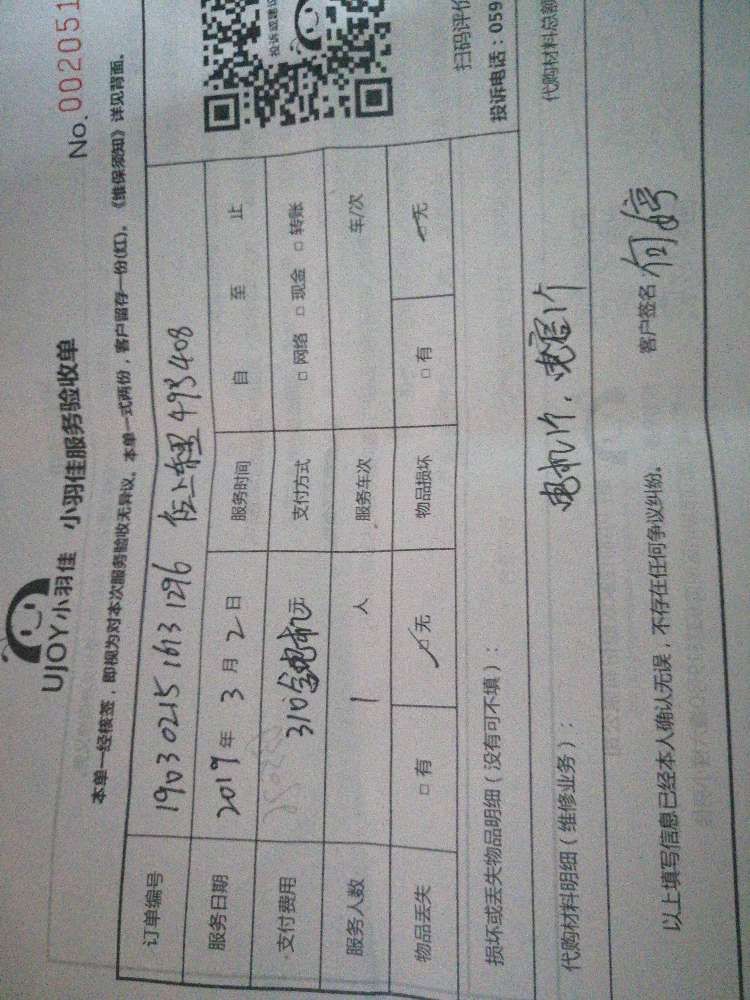 UJOY小羽佳 小羽佳服务验收单
No. 002051
本单一经核签，即视为对本次服务验收无异议。本单一式两份，客户留存一份(红)。《维保须知》详见背面。
订单编号 190302151613 1296 493408
服务日期 2019 年 3 月 2 日 服务时间 自 至 止
支付费用 310含电机元 支付方式 □ 网络 □ 现金 □ 转账
服务人数 1 人 服务车次 车/次
物品丢失 □ 有 ☑ 无 物品损坏 □ 有 ☑ 无
投诉或建议
扫码评价
投诉电话：059
损坏或丢失物品明细（没有可不填）：
代购材料明细（维修业务）： 电机1个，电容1个 代购材料总额
以上填写信息已经本人确认无误，不存在任何争议纠纷。 客户签名 何婷